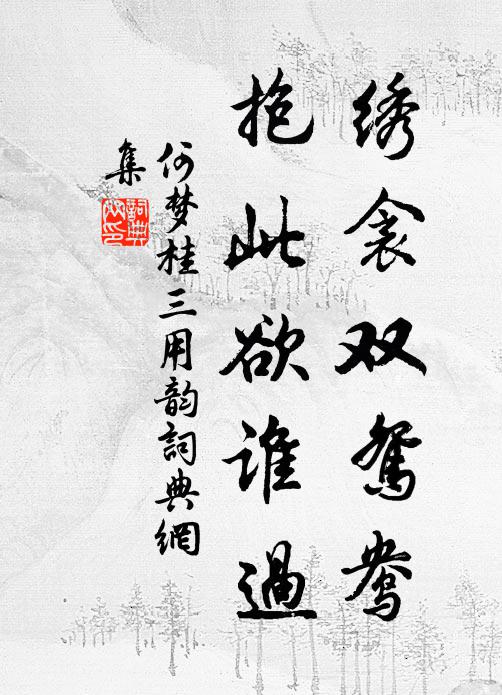 绣衾双鸳鸯
抱此欲谁過
何梦桂三用韵詞典網
集
詞典
網印